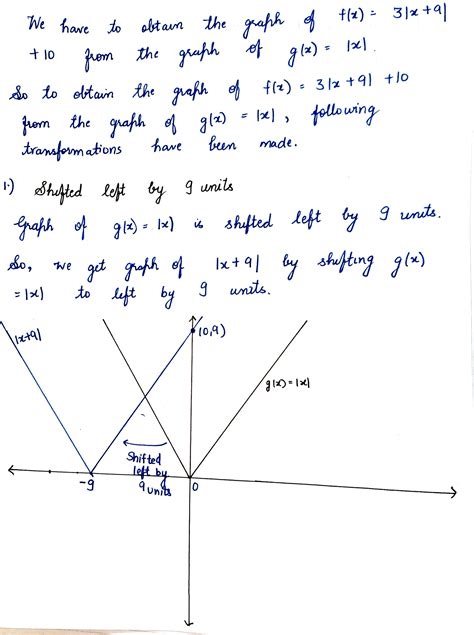 We have to obtain the graph of f(x) = 3|x+9|
+10 from the graph of g(x) = |x|.
So to obtain the graph of f(x) = 3|x+9| +10
from the graph of g(x) = |x|, following
transformations have been made.
1.) Shifted left by 9 units
Graph of g(x) = |x| is shifted left by 9 units.
So, we get graph of |x+9| by shifting g(x)
= |x| to left by 9 units.
|x+9|
(0,9)
g(x) = |x|
Shifted
left by
9 units
-9
0